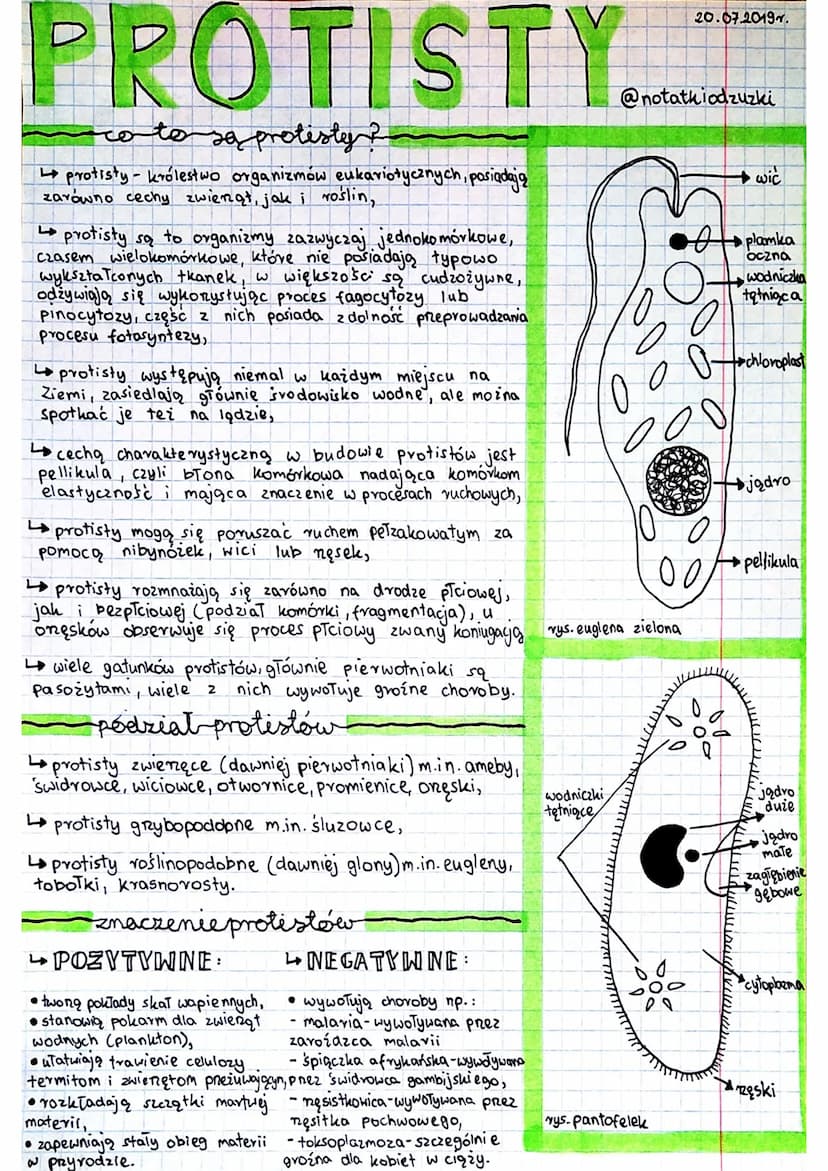 PROTISTY
20.07.2019r.
@notatkiodzuzki
co to są protisty?
↳ protisty - królestwo organizmów eukariotycznych, posiadają
zarówno cechy zwierząt, jak i roślin,
↳ protisty są to organizmy zazwyczaj jednokomórkowe,
czasem wielokomórkowe, które nie posiadają typowo
wykształconych tkanek, w większości są cudzożywne,
odżywiają się wykorzystując proces fagocytozy lub
pinocytozy, część z nich posiada zdolność przeprowadzania
procesu fotosyntezy,
↳ protisty występują niemal w każdym miejscu na
Ziemi, zasiedlają głównie środowisko wodne, ale można
spotkać je też na lądzie,
↳ cechą charakterystyczną w budowie protistów jest
pellikula, czyli błona komórkowa nadająca komórkom
elastyczność i mająca znaczenie w procesach ruchowych,
↳ protisty mogą się poruszać ruchem pełzakowatym za
pomocą nibynóżek, wici lub rzęsek,
↳ protisty rozmnażają się zarówno na drodze płciowej,
jak i bezpłciowej (podział komórki, fragmentacja), u
orzęsków obserwuje się proces płciowy zwany koniugacją
↳ wiele gatunków protistów, głównie pierwotniaki są
pasożytami, wiele z nich wywołuje groźne choroby.
podział protistów
↳ protisty zwierzęce (dawniej pierwotniaki) m.in. ameby,
świdrowce, wiciowce, otwornice, promienice, orzęski,
↳ protisty grzybopodobne m.in. śluzowce,
↳ protisty roślinopodobne (dawniej glony) m.in. eugleny,
tobołki, krasnorosty.
znaczenie protistów
↳ POZYTYWNE:
• tworzą pokłady skał wapiennych,
• stanowią pokarm dla zwierząt
wodnych (plankton),
• ułatwiają trawienie celulozy
termitom i zwierzętom przeżuwającym,
• rozkładają szczątki martwej
materii,
• zapewniają stały obieg materii
w przyrodzie.
↳ NEGATYWNE:
• wywołują choroby np.:
- malaria - wywoływana przez
zarodźca malarii
- śpiączka afrykańska - wywoływana
przez świdrowca gambijskiego,
- rzęsistkowica - wywoływana przez
rzęsistka pochwowego,
- toksoplazmoza - szczególnie
groźna dla kobiet w ciąży.
wić
plamka
oczna
wodniczka
tętniąca
chloroplast
jądro
pellikula
rys. euglena zielona
wodniczki
tętniące
jądro
duże
jądro
małe
zagłębienie
gębowe
cytoplazma
rzęski
rys. pantofelek